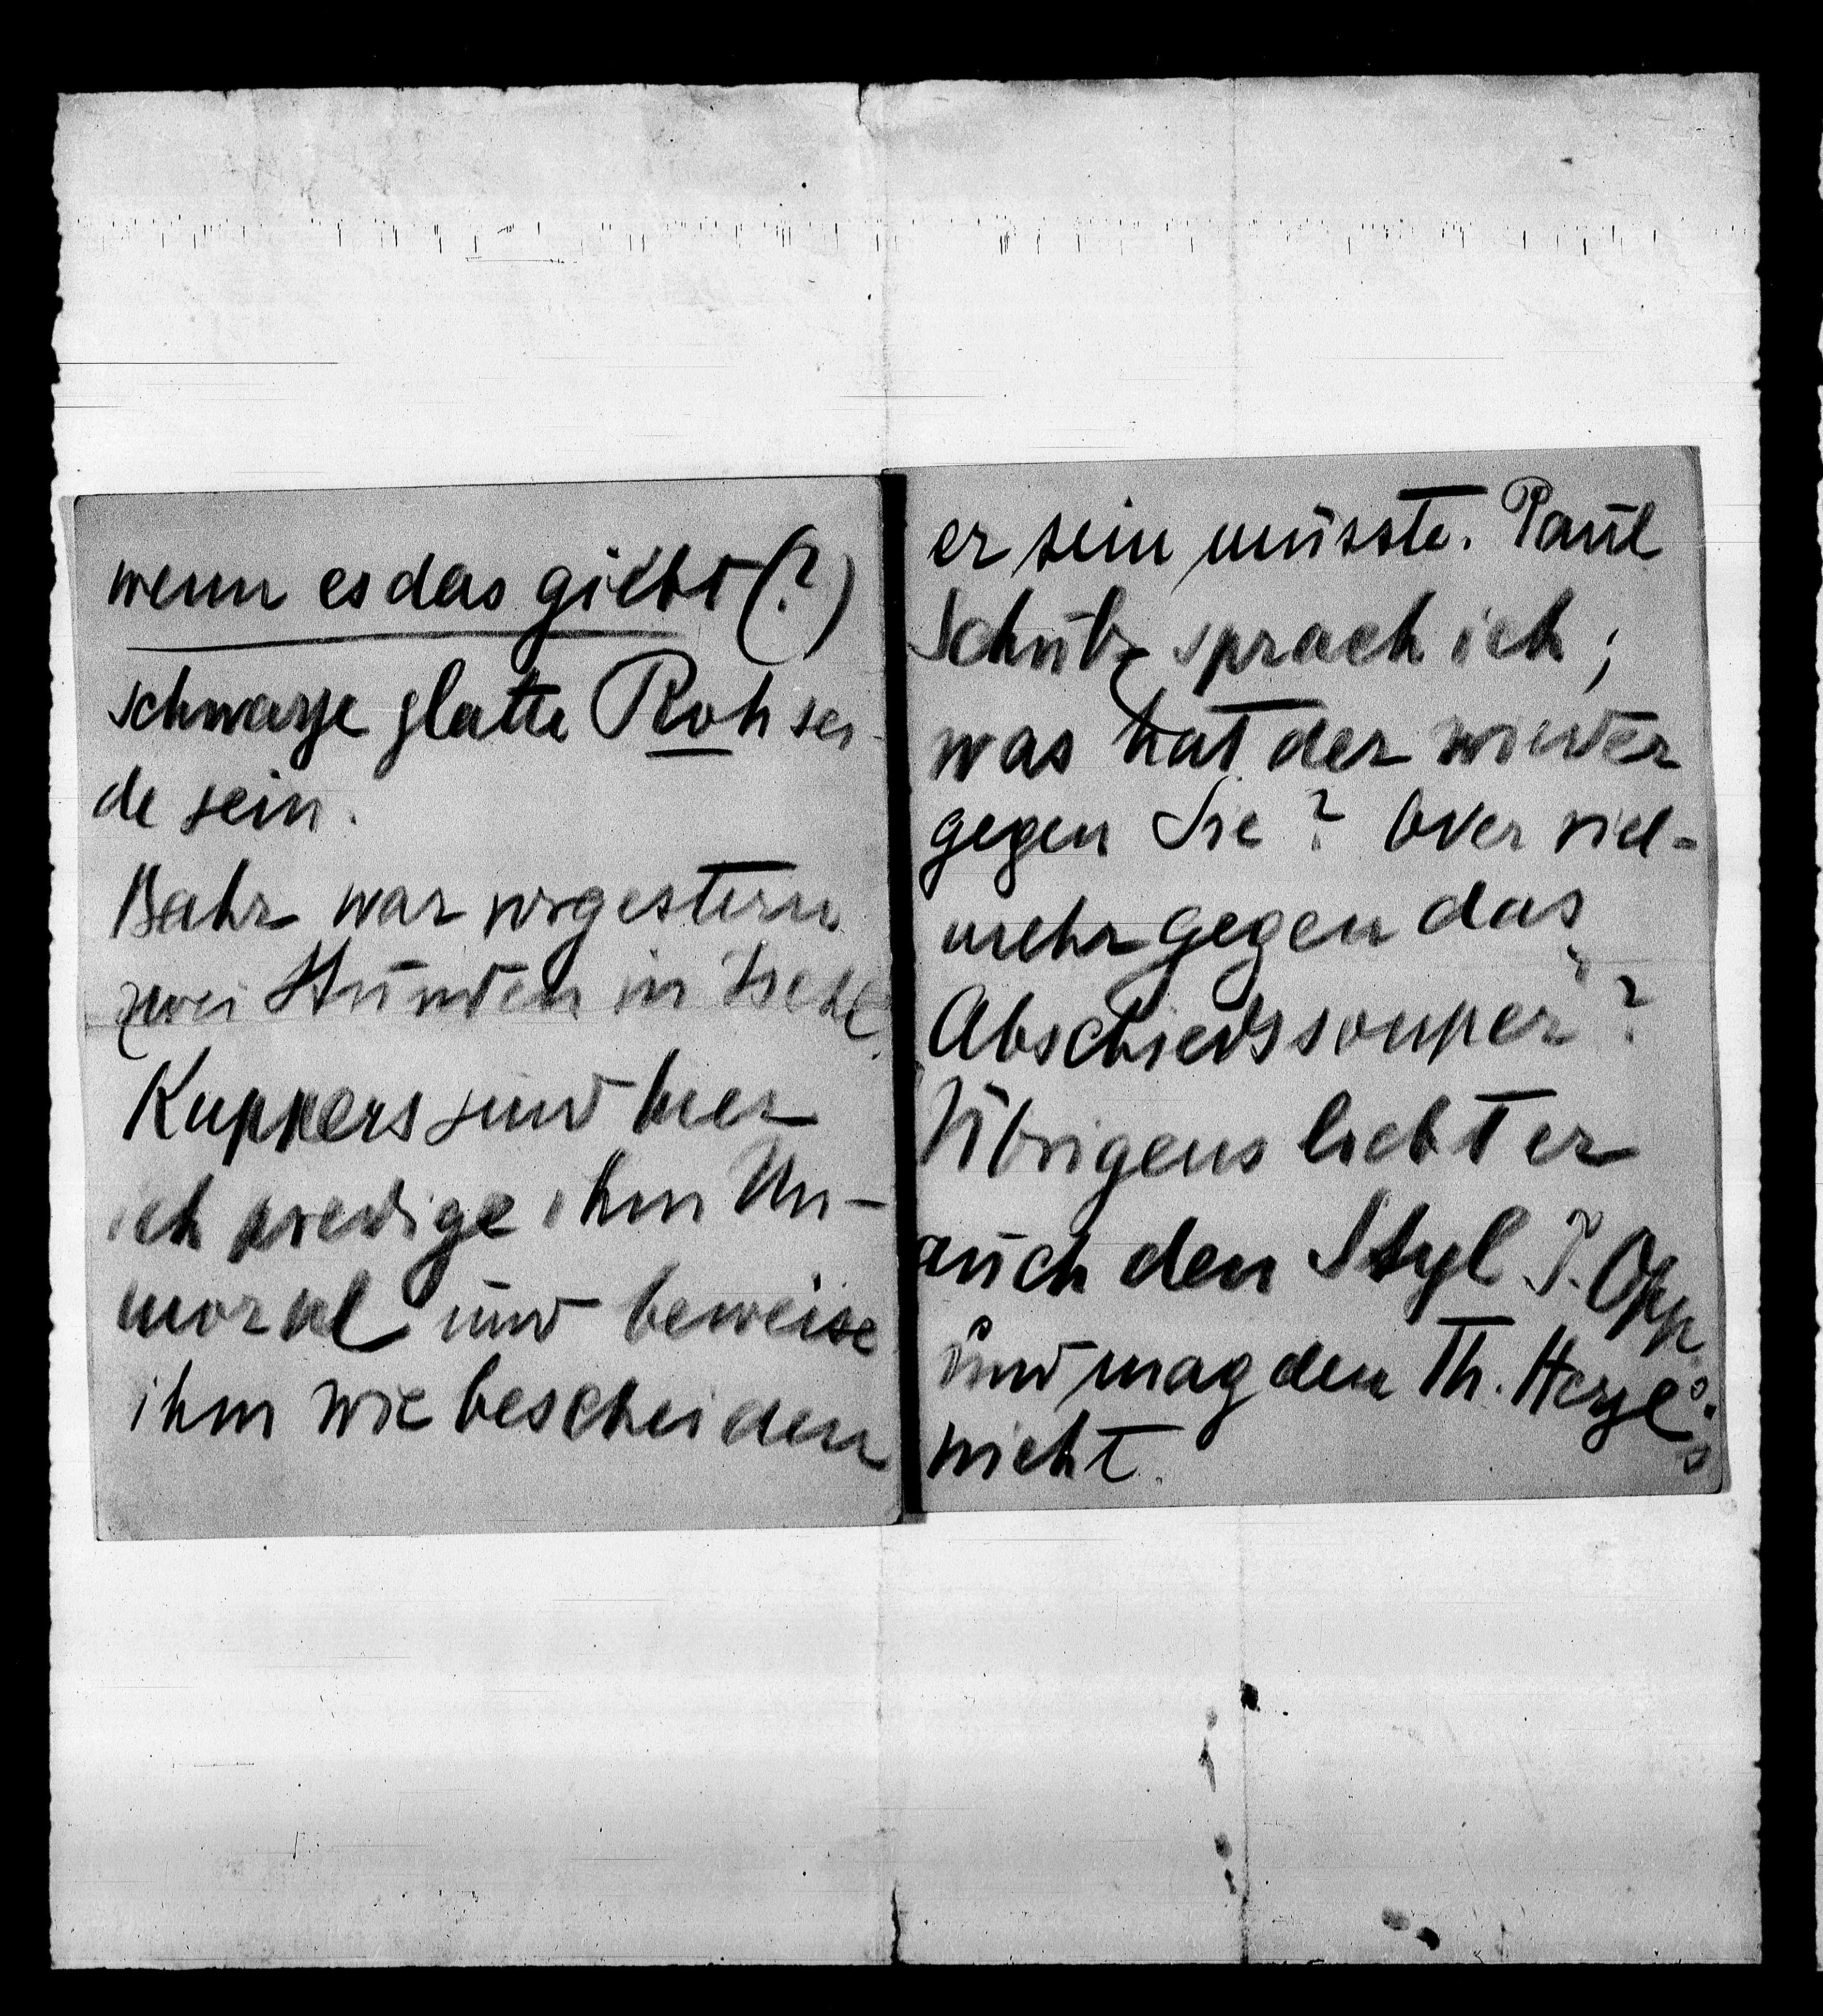 wenn es das giebt (?)
schwarze glatte Rohsei-
de sein.
Bahr war vorgestern
zwei Stunden in Ischl.
Kuppers sind hier
ich predige ihm Un-
moral und beweise
ihm wie bescheiden
er sein müsste. Paul
Schulz sprach ich;
was hat der wieder
gegen Sie? Oder viel-
mehr gegen das
Abschiedssouper?
Übrigens liebt er
auch den Styl P. Opp.
und mag den Th. Herzl's
nicht.